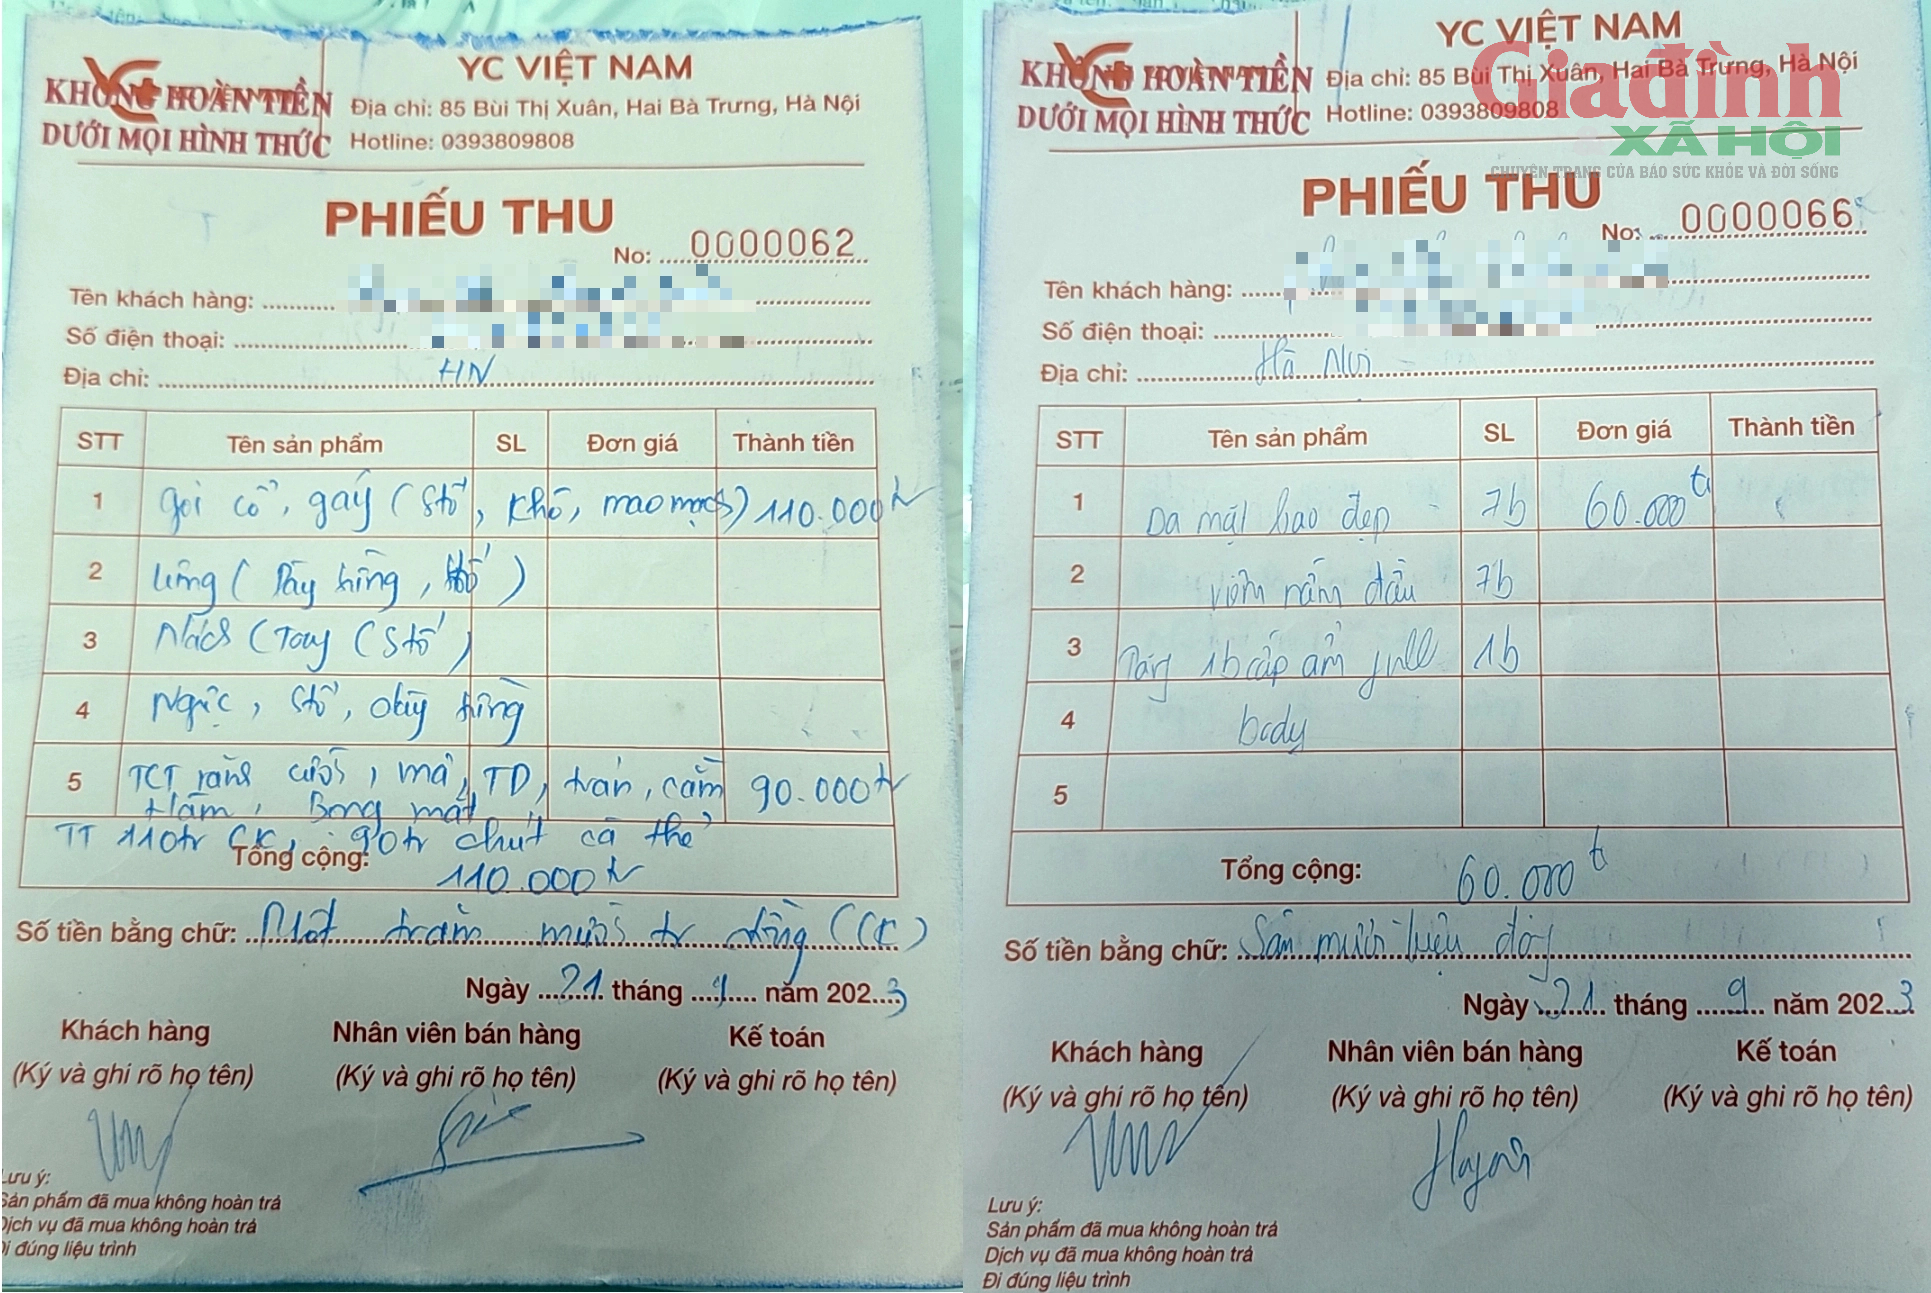 YC VIỆT NAM
KHÔNG HOÀN TIỀN
DƯỚI MỌI HÌNH THỨC
Địa chỉ: 85 Bùi Thị Xuân, Hai Bà Trưng, Hà Nội
Hotline: 0393809808
PHIẾU THU
No: 0000062
Tên khách hàng:
Số điện thoại:
Địa chỉ: HN
STT Tên sản phẩm SL Đơn giá Thành tiền
1 gói cổ, gáy (Stố, khô, mao mạch) 110.000tr
2 Lưng (
3 Nách (Tay (Stố)
4 Ngực, Stố,
5 TCT cười, má, TD, trán, cằm 90.000tr
thâm, Bọng mắt
TT 110tr CK, 90tr chút cà thẻ
Tổng cộng: 110.000tr
Số tiền bằng chữ: Một trăm mười tr đồng (CK)
Ngày 21 tháng 9 năm 2023
Khách hàng Nhân viên bán hàng Kế toán
(Ký và ghi rõ họ tên) (Ký và ghi rõ họ tên) (Ký và ghi rõ họ tên)
Lưu ý:
Sản phẩm đã mua không hoàn trả
Dịch vụ đã mua không hoàn trả
Đi đúng liệu trình
YC VIỆT NAM
KHÔNG HOÀN TIỀN
DƯỚI MỌI HÌNH THỨC
Địa chỉ: 85 Bùi Thị Xuân, Hai Bà Trưng, Hà Nội
Hotline: 0393809808
Giađình
XÃ HỘI
CHUYÊN TRANG CỦA BÁO SỨC KHỎE VÀ ĐỜI SỐNG
PHIẾU THU
No: 0000066
Tên khách hàng:
Số điện thoại:
Địa chỉ: Hà Nội
STT Tên sản phẩm SL Đơn giá Thành tiền
1 Da mặt bao đẹp 7b 60.000t
2 viêm nấm đầu 7b
3 Tặng 1b cấp ẩm full 1b
4 body
5
Tổng cộng: 60.000t
Số tiền bằng chữ: Sáu mươi triệu đồng
Ngày 21 tháng 9 năm 2023
Khách hàng Nhân viên bán hàng Kế toán
(Ký và ghi rõ họ tên) (Ký và ghi rõ họ tên) (Ký và ghi rõ họ tên)
Lưu ý:
Sản phẩm đã mua không hoàn trả
Dịch vụ đã mua không hoàn trả
Đi đúng liệu trình